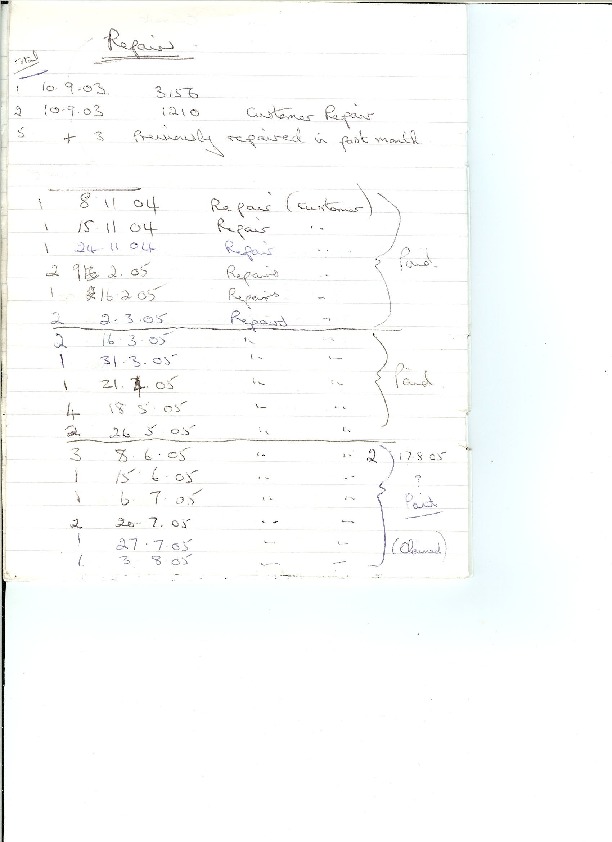 Repair
1 10.9.03 3156
2 10.9.03 1210 Customer Repair
5 + 3 Previously repaired in past month
1 8 11 04 Repair (customer)
1 15.11 04 Repair " "
1 24.11 04 Repair " "
2 2.05 Repairs "
1 16 2 05 Repairs "
2 2.3.05 Repairs "
Paid
2 16.3.05 " "
1 31.3.05 " "
1 21.4.05 " "
Paid
4 18 5.05 " "
2 26 5 05 " "
3 8.6.05 " " 2 17805
1 15.6.05 " "
?
1 6 7.05 " "
Part
2 20.7.05 " "
1 27.7 05 " "
(Claimed)
1 3 8 05 " "